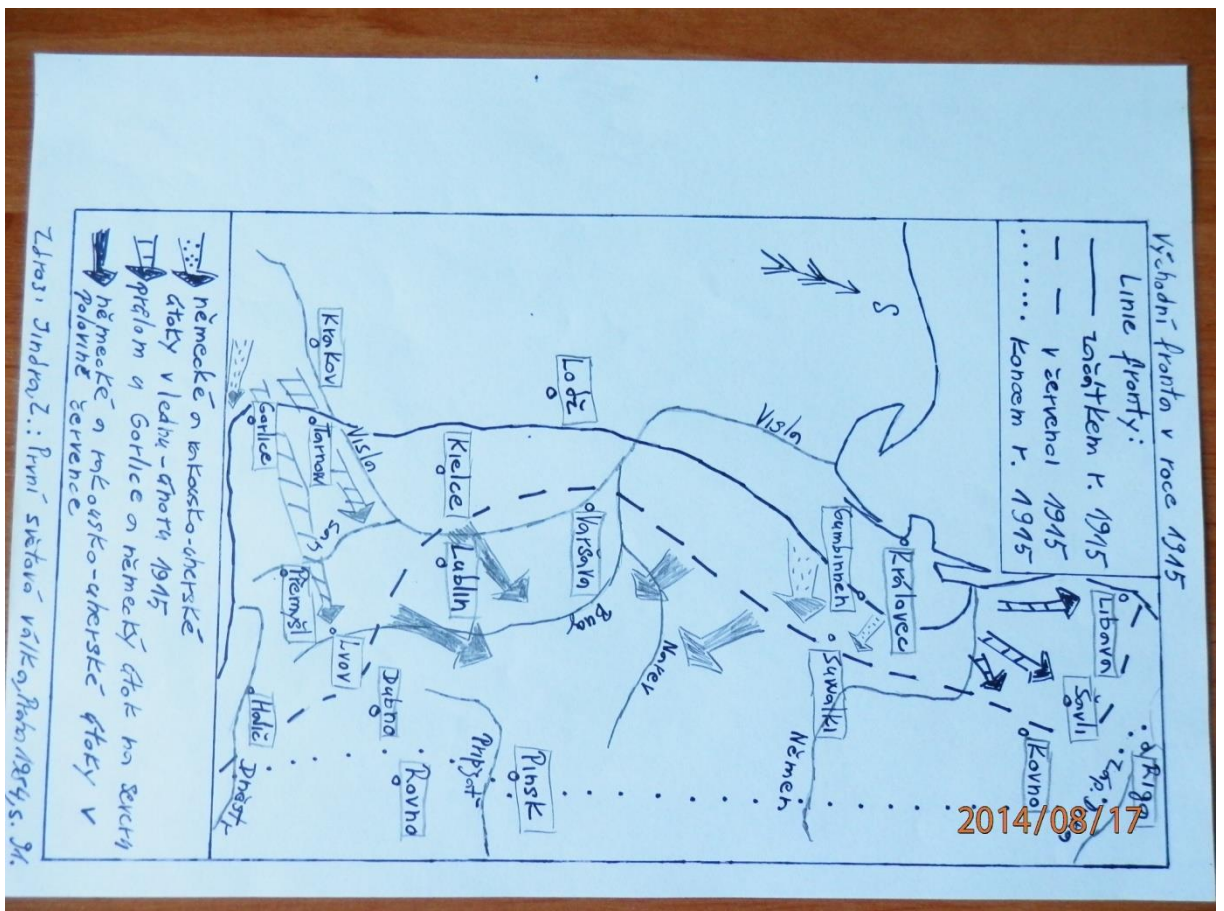 Východní fronta v roce 1915
Linie fronty:
začátkem r. 1915
v červenci 1915
koncem r. 1915
S
Riga
Záp. Dvina
Libava
Šavli
Kovno
Královec
Gumbinnen
Suwalki
Němen
Visla
Narev
Lodž
Varšava
Bug
Pinsk
Pripjať
Kielce
Lublin
Visla
Krakov
Tarnow
Gorlice
San
Přemyšl
Lvov
Dubno
Rovno
Halič
Dněstr
německé a rakousko-uherské
útoky v lednu-únoru 1915
průlom u Gorlice a německý útok na severu
německé a rakousko-uherské útoky v
polovině července
Zdroj: Jindra, Z.: První světová válka, Praha 1984, s. 91.
2014/08/17